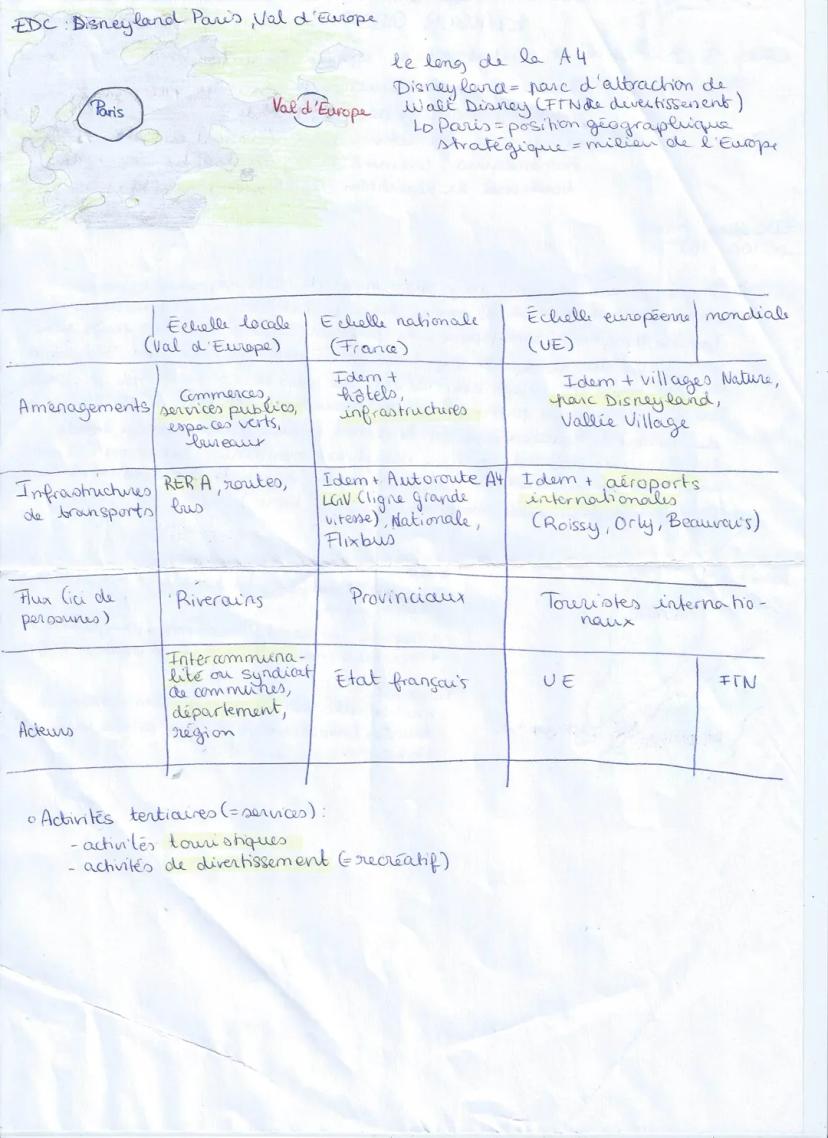 EDC : Disneyland Paris, Val d'Europe
Paris
Val d'Europe
le long de la A4
Disneyland = parc d'attraction de
Walt Disney (FTN de divertissement)
↳ Paris = position géographique
stratégique = milieu de l'Europe
Échelle locale
(Val d'Europe)
Echelle nationale
(France)
Échelle européenne
(UE)
mondiale
Aménagements
Commerces,
services publics,
espaces verts,
bureaux
Idem +
hôtels,
infrastructures
Idem + villages Nature,
parc Disneyland,
Vallée Village
Infrastructures
de transports
RER A, routes,
bus
Idem + Autoroute A4
LGV (ligne grande
vitesse), Nationale,
Flixbus
Idem + aéroports
internationales
(Roissy, Orly, Beauvais)
Flux (ici de
personnes)
Riverains
Provinciaux
Touristes internatio-
naux
Acteurs
Intercommuna-
lité ou syndicat
de communes,
département,
région
État français
UE
FTN
o Activités tertiaires (= services) :
- activités touristiques
- activités de divertissement (= recréatif)